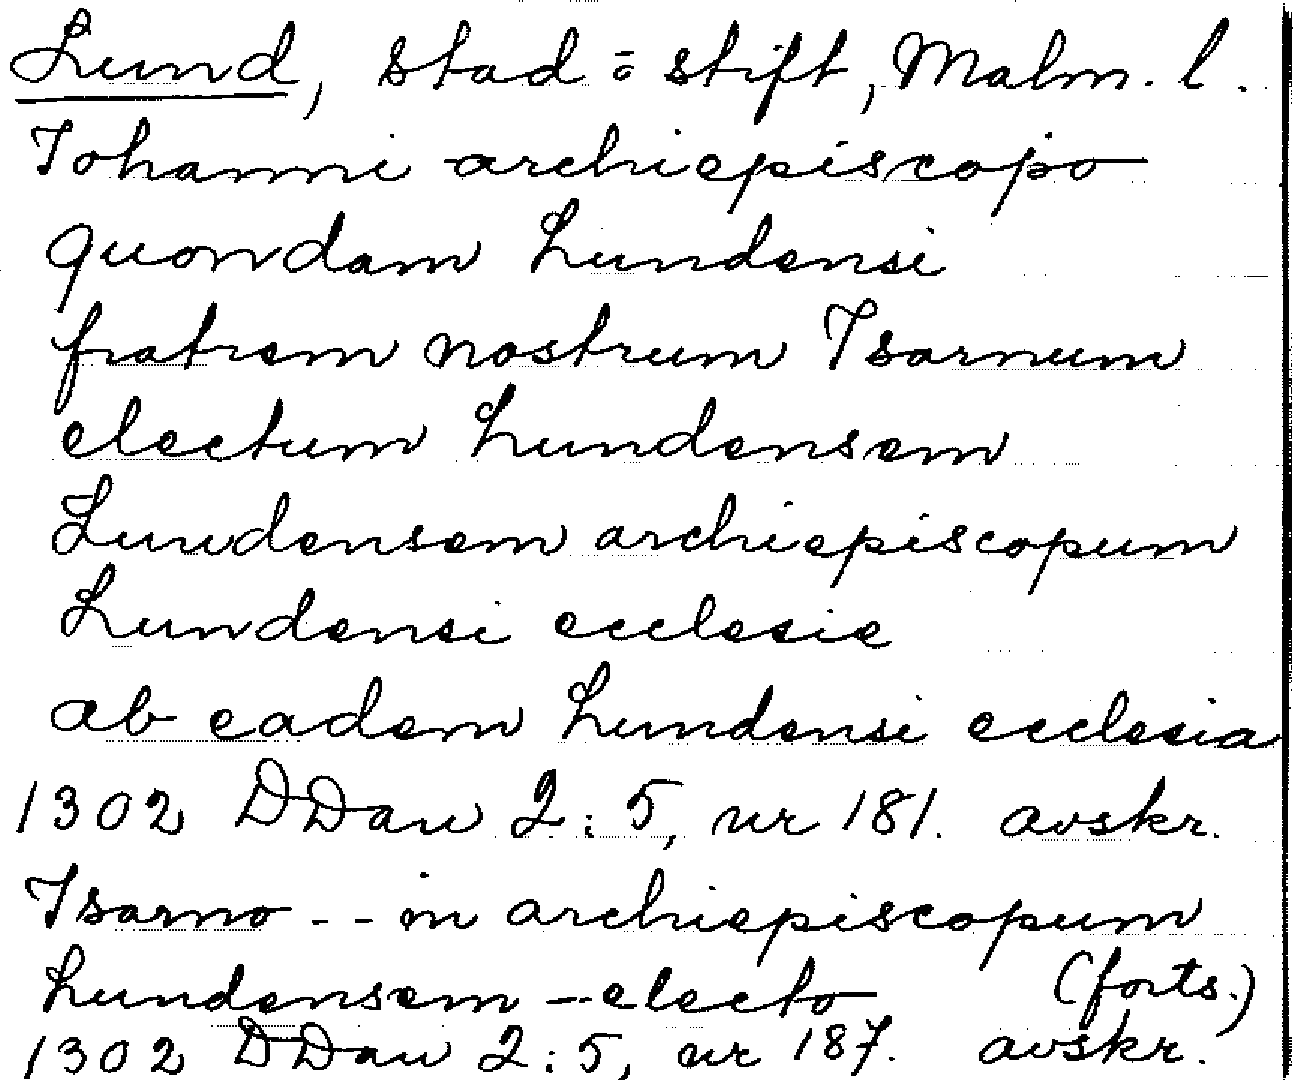 Lund, stad o stift, Malm. l.
Johanni archiepiscopo
quondam Lundensi
fratrem nostrum Isarnum
electum Lundensem
Lundensem archiepiscopum
Lundensi ecclesie
ab eadem Lundensi ecclesia
1302 DDan 2:5, nr 181. avskr.
Isarno -- in archiepiscopum
Lundensem -- electo (forts.)
1302 DDan 2:5, nr 187. avskr.